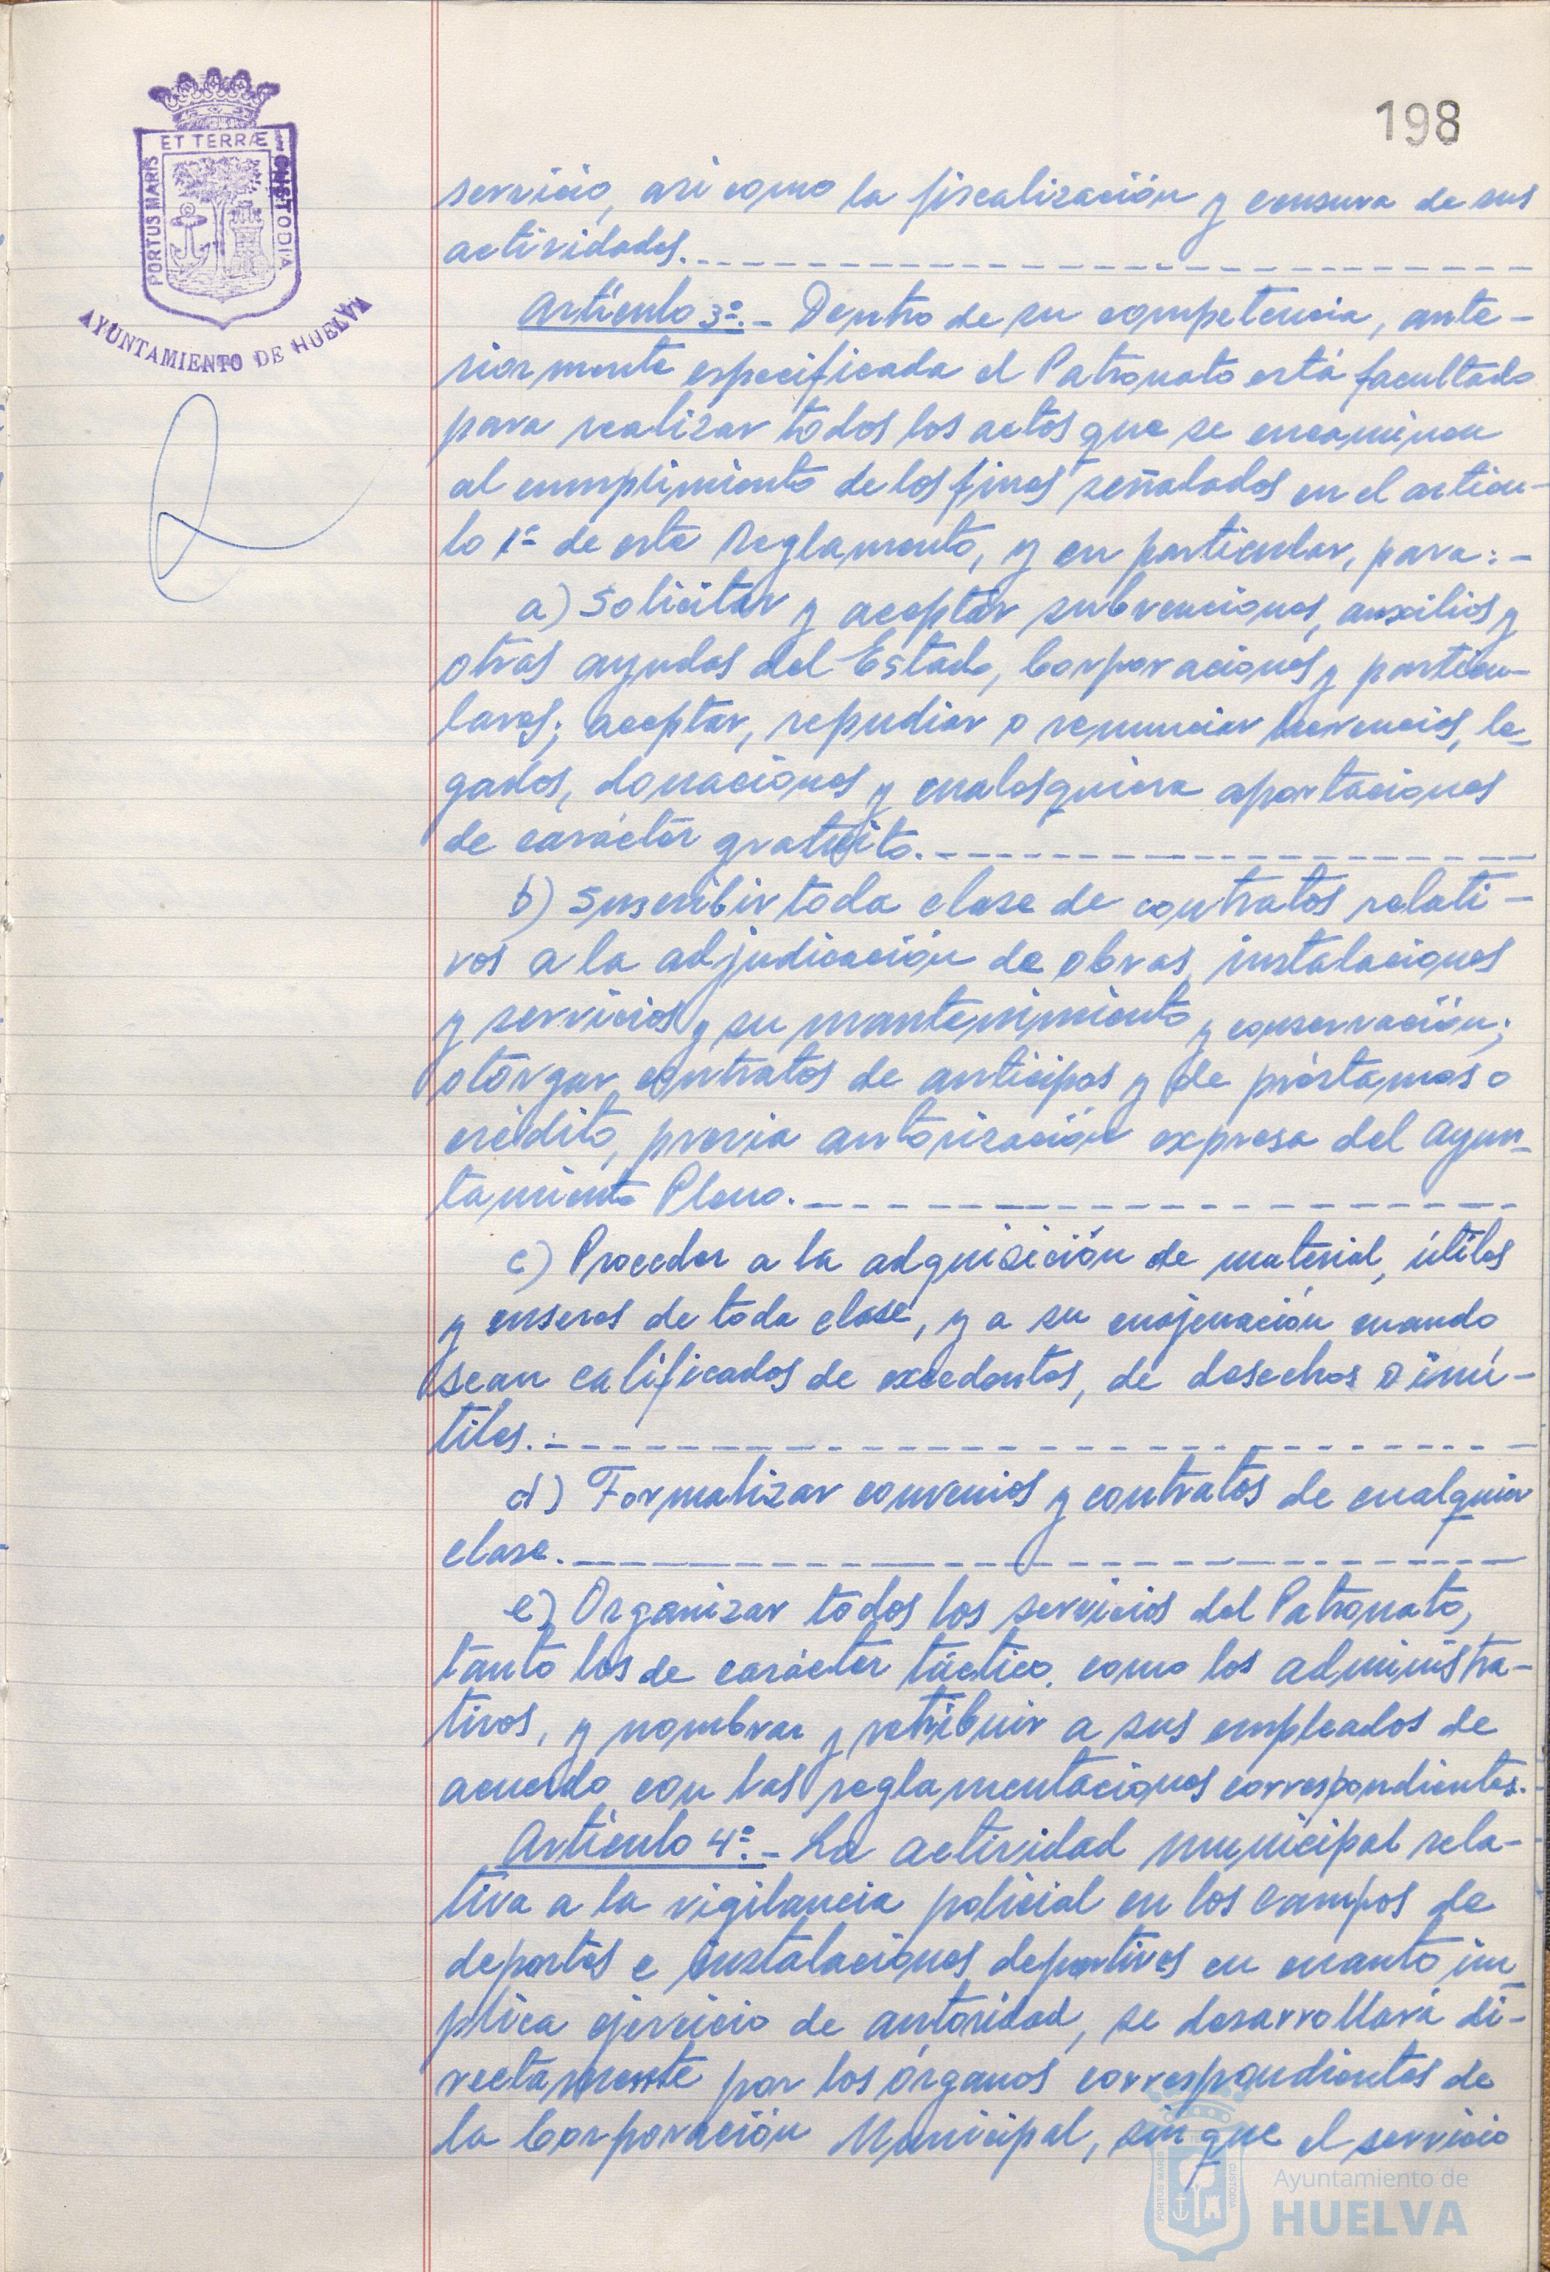 198
ET TERRÆ
PORTUS MARIS
CUSTODIA
AYUNTAMIENTO DE HUELVA
servicio, asi como la fiscalización y censura de sus
actividades.
Artículo 3º.- Dentro de su competencia, ante-
riormente especificada el Patronato está facultado
para realizar todos los actos que se encaminen
al cumplimiento de los fines señalados en el artícu-
lo 1º de este Reglamento, y en particular, para:-
a) Solicitar y aceptar subvenciones, auxilios y
otras ayudas del Estado, Corporaciones y particu-
lares; aceptar, repudiar o renunciar herencias, le-
gados, donaciones y cualesquiera aportaciones
de carácter gratuito.
b) Suscribir toda clase de contratos relati-
vos a la adjudicación de obras, instalaciones
y servicios y su mantenimiento y conservación;
otorgar contratos de anticipos y de préstamos o
crédito, previa autorización expresa del Ayun-
tamiento Pleno.
c) Proceder a la adquisición de material, útiles
y enseres de toda clase, y a su enajenación cuando
sean calificados de excedentes, de desechos o inú-
tiles.
d) Formalizar convenios y contratos de cualquier
clase.
e) Organizar todos los servicios del Patronato,
tanto los de carácter táctico, como los administra-
tivos, y nombrar y retribuir a sus empleados de
acuerdo con las reglamentaciones correspondientes.
Artículo 4º.- La actividad municipal rela-
tiva a la vigilancia policial en los campos de
deportes e instalaciones deportivas en cuanto im-
plica ejercicio de autoridad, se desarrollará di-
rectamente por los órganos correspondientes de
la Corporación Municipal, sin que el servicio
PORTUS MARIS
CUSTODIA
Ayuntamiento de
HUELVA